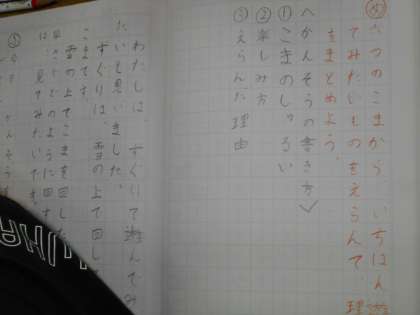 六つのこまから いちばん遊
てみたいものをえらんで、理
をまとめよう。
〈かんそうの書き方〉
①こまのしゅるい
②楽しみ方
③えらんだ理由
わたしは、ずぐりで遊んでみ
たいと思いました。
ずぐりは、雪の上で回し
こまです。
雪の上でこまを回した
は、見てみたいです。